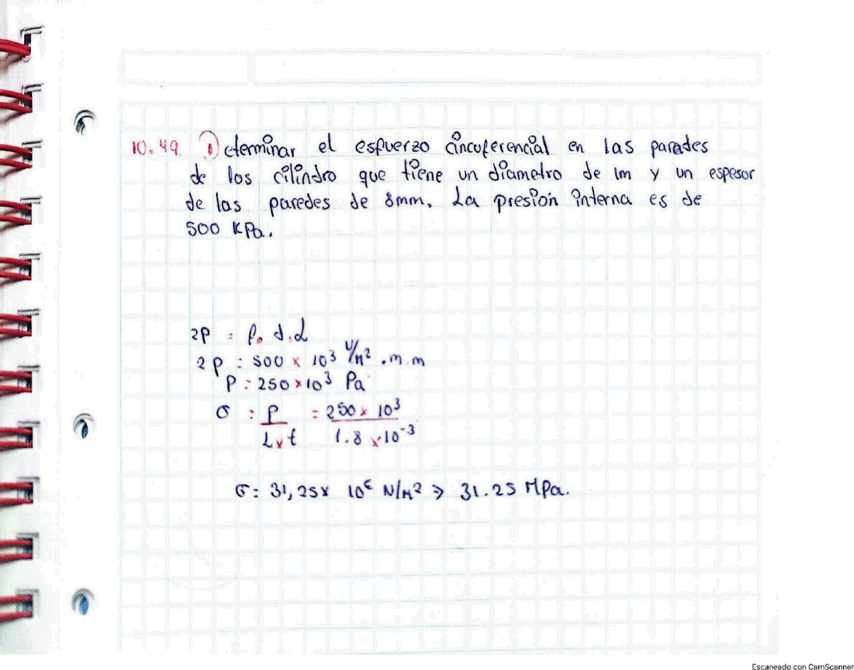 10.49 Determinar el esfuerzo cincuferencial en las paredes
de los cilindro que tiene un diametro de 1m y un espesor
de las paredes de 8mm. La presion interna es de
500 KPa.
2P = P. d. L
2P = 500 × 10³ N/m² . m. m
P = 250 × 10³ Pa
σ = P / L × t = 250 × 10³ / 1.8 × 10⁻³
σ = 31,25 × 10⁶ N/m² => 31.25 MPa.
Escaneado con CamScanner